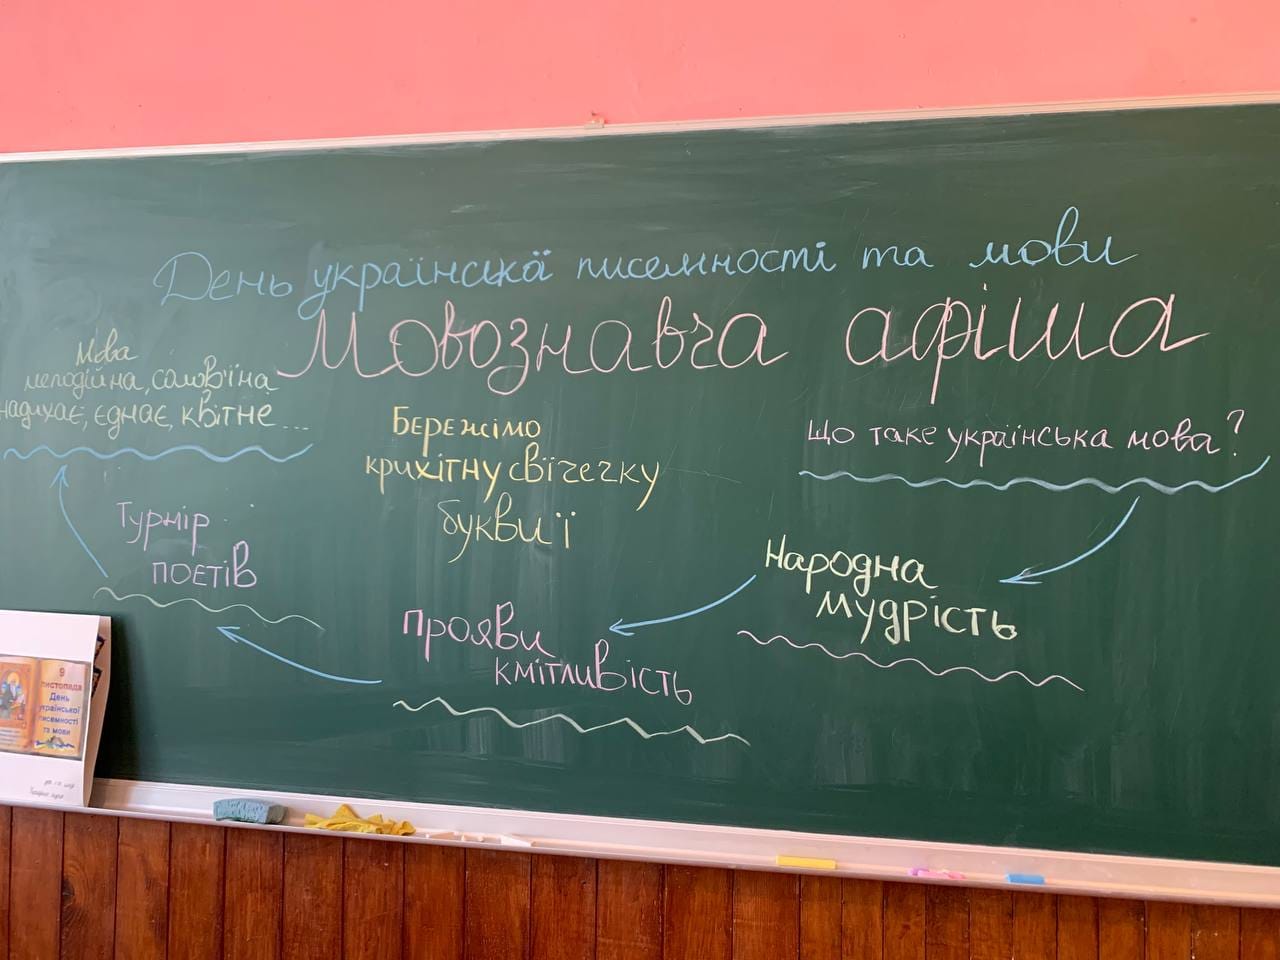 День української писемності та мови
Мовознавча афіша
Мова
мелодійна, солов'їна
надихає, єднає, квітне...
Бережімо
крихітну свічечку
букви ї
Що таке українська мова?
Народна
мудрість
Прояви
кмітливість
Турнір
поетів
9
листопада
День
української
писемності
та мови